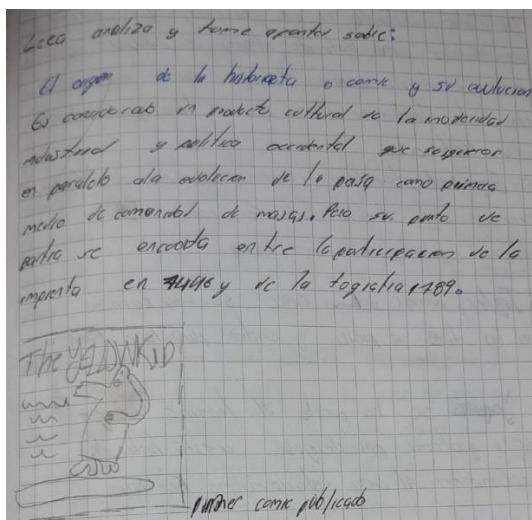 Lea analiza y tome apuntes sobre:
El origen de la historieta o comic y su evolucion
Es considerado un producto cultural de la modernidad
industrial y politica occidental que surgieron
en paralelo a la evolucion de la prensa como primer
medio de comunidad de masas. Pero su punto de
partida se encontra entre la participacion de la
imprenta en 1446 y de la togrofia 1789.
The YELLOWKID
primer comic publicado